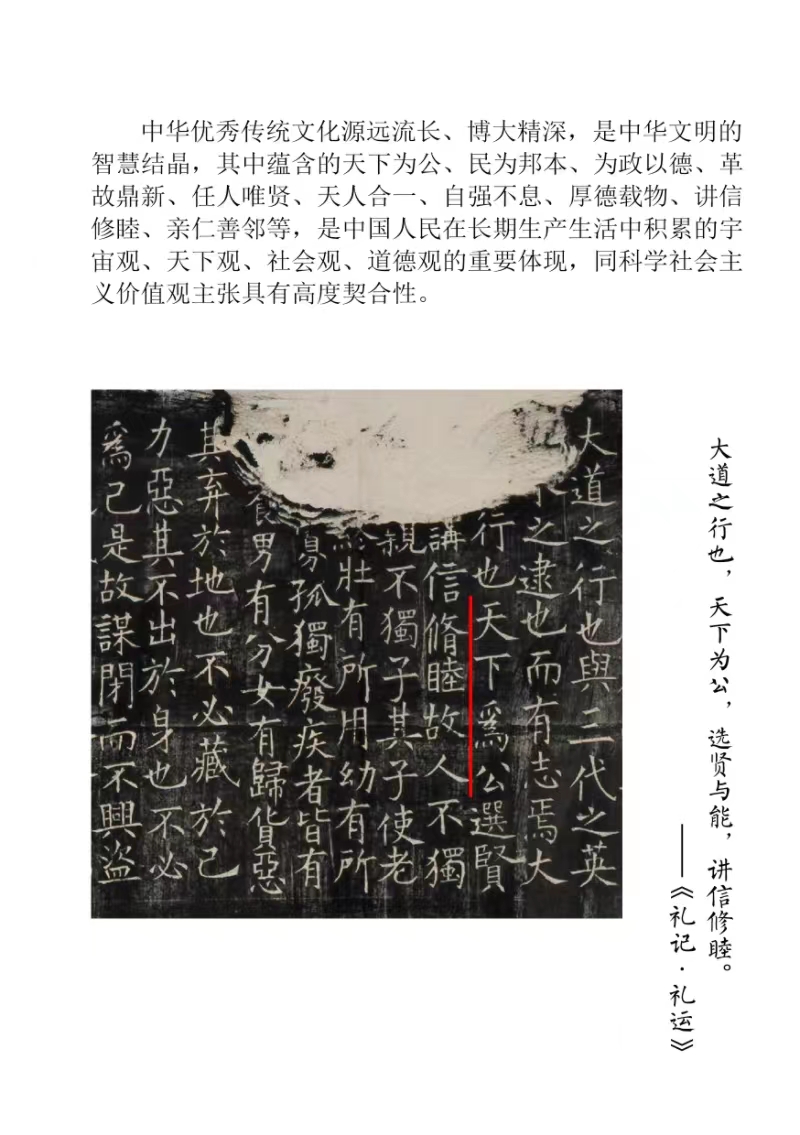 中华优秀传统文化源远流长、博大精深，是中华文明的
智慧结晶，其中蕴含的天下为公、民为邦本、为政以德、革
故鼎新、任人唯贤、天人合一、自强不息、厚德载物、讲信
修睦、亲仁善邻等，是中国人民在长期生产生活中积累的宇
宙观、天下观、社会观、道德观的重要体现，同科学社会主
义价值观主张具有高度契合性。
大道之行也，天下为公，选贤与能，讲信修睦。
——《礼记·礼运》
大道之行也與三代之英
之逮也而有志焉大
行也天下爲公選賢
講信脩睦故人不獨
親不獨子其子使老
壯有所用幼有所
孤獨廢疾者皆有
男有分女有歸貨惡
其弃於地也不必藏於己
力惡其不出於身也不必
爲己是故謀閉而不興盜